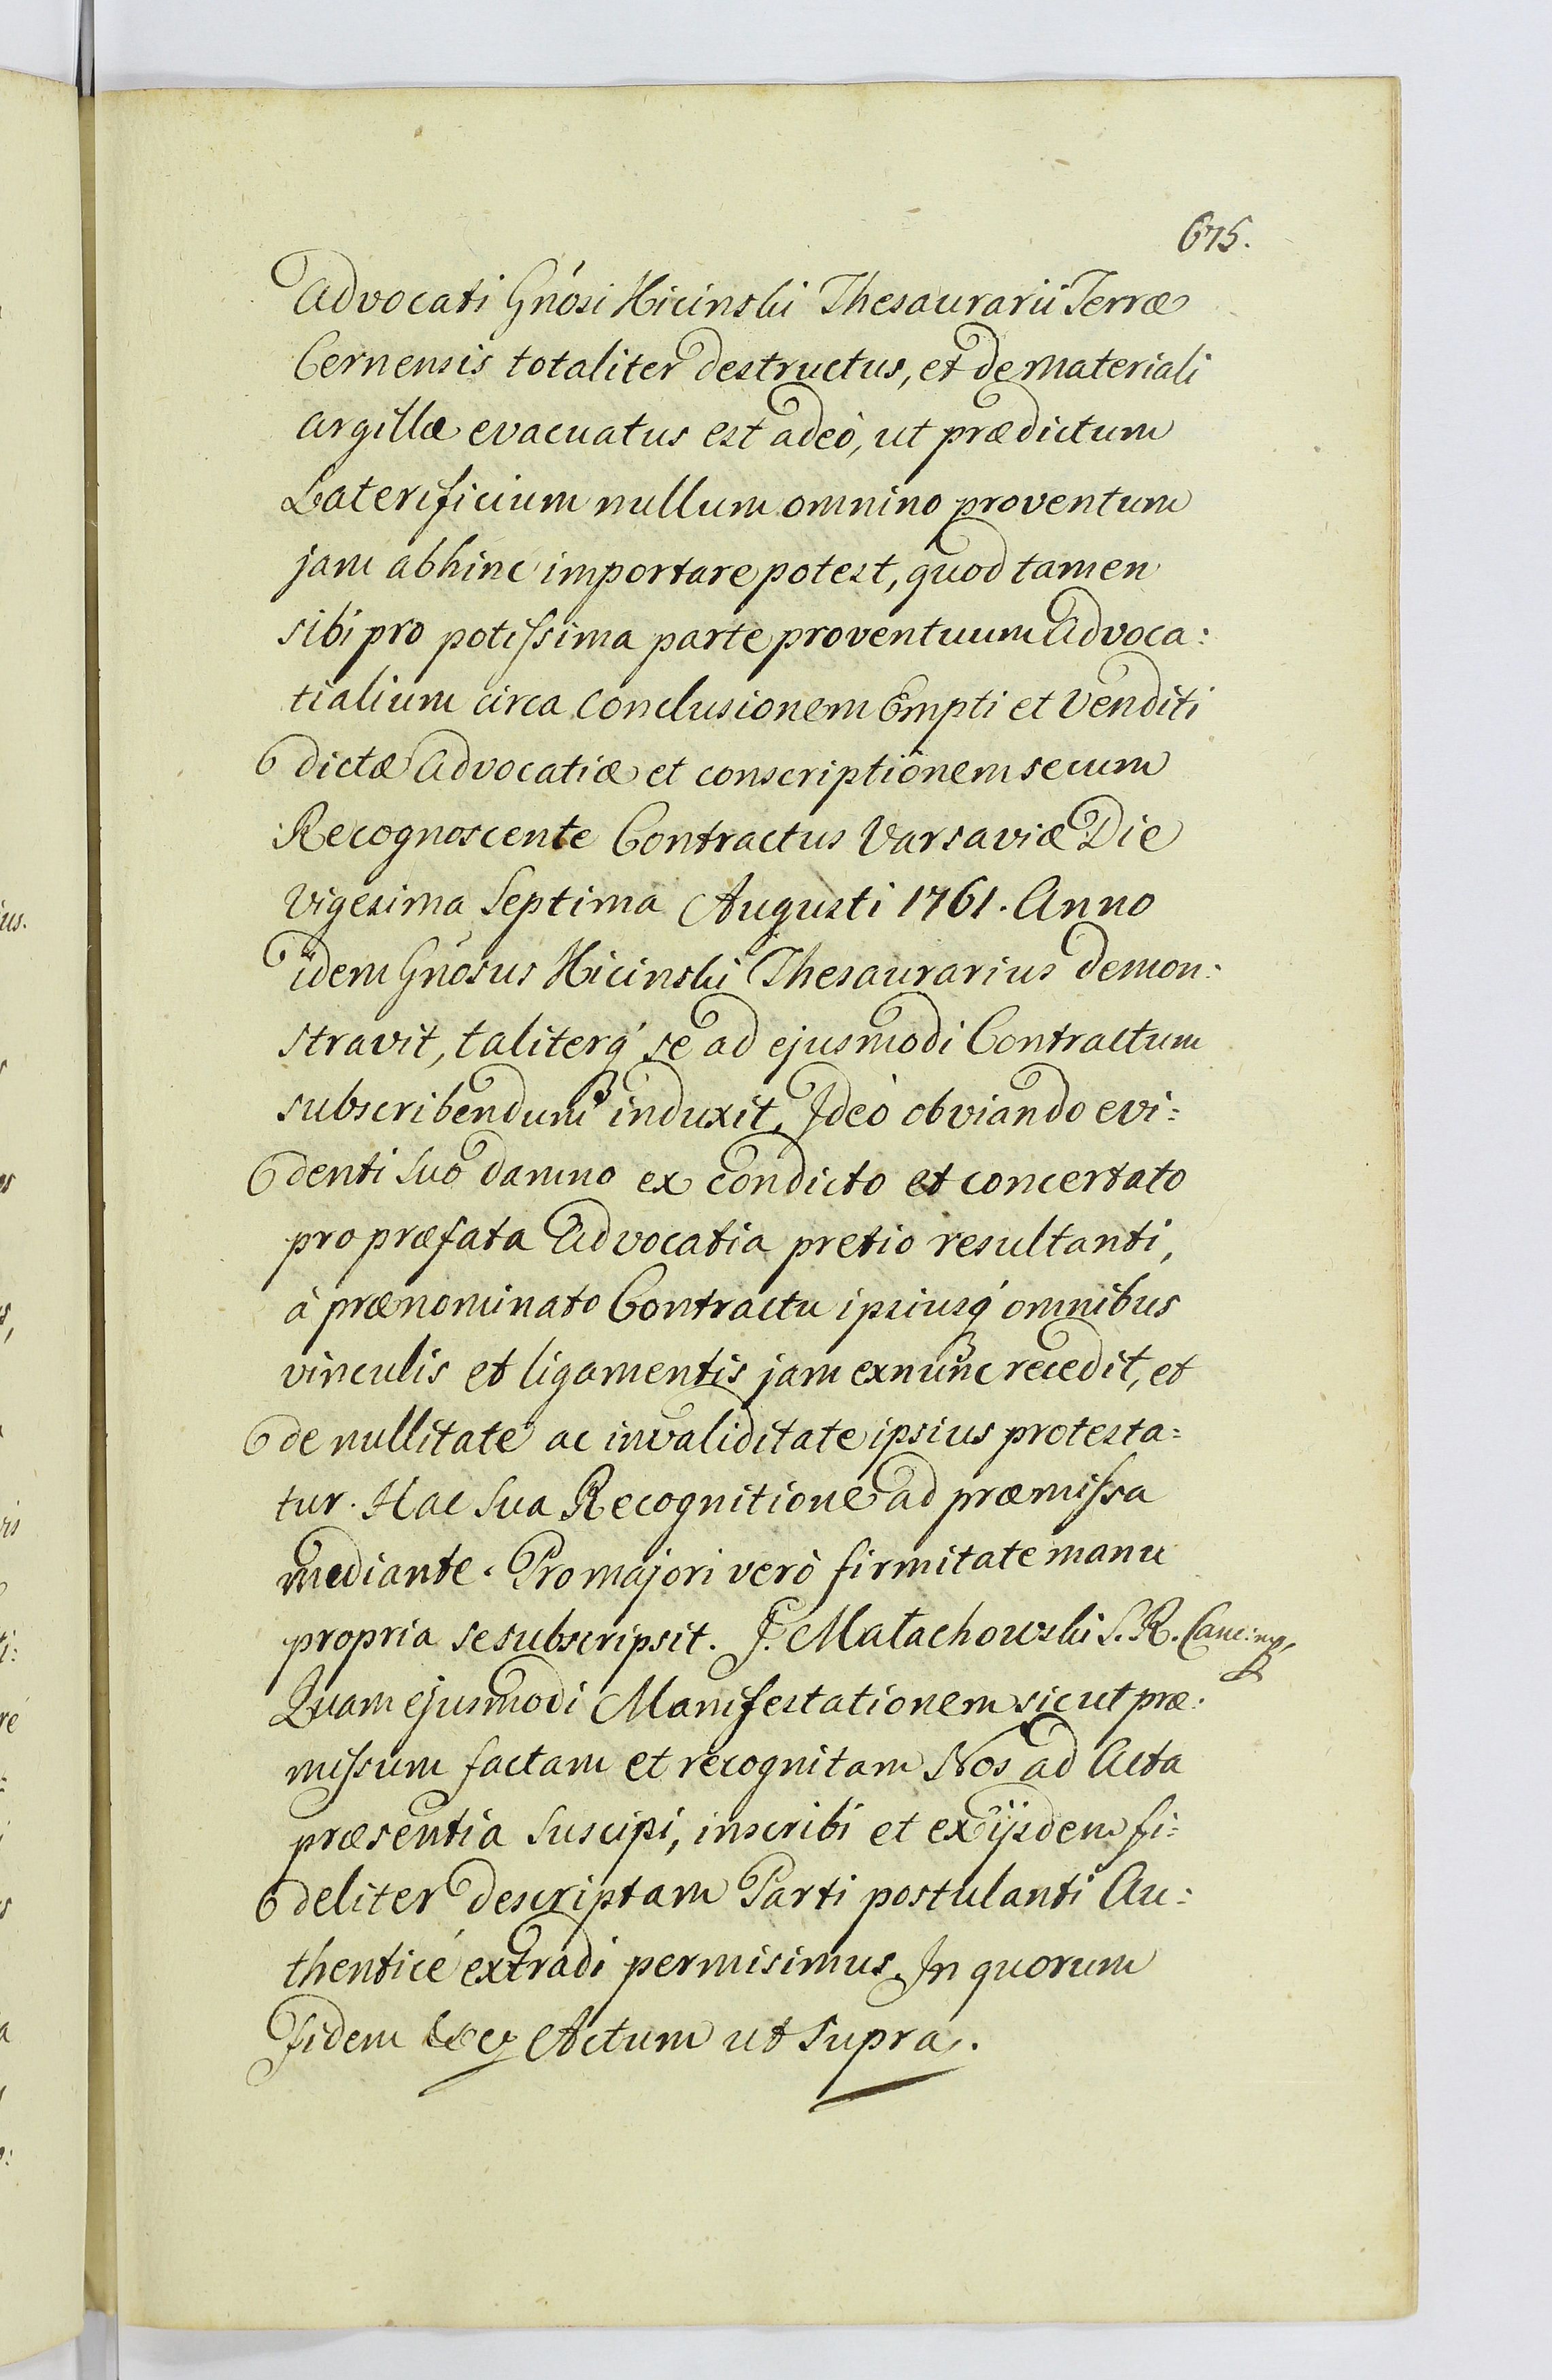 675.
Advocati Gnósi Kicinski Thesaurarii Terræ
Cernensis totaliter destructus, et de materiali
argillæ evacuatus est adeò, ut prædictum
Laterificium nullum omnino proventum
jam abhinc importare potest, quod tamen
sibi pro potissima parte proventuum Advoca:
tialium circa Conclusionem Empti et Venditi
dictæ Advocatiæ et conscriptionem secum
Recognoscente Contractus Varsaviæ Die
Vigesima Septima Augusti 1761. Anno
idem Gnósus Kicinski Thesaurarius demon:
stravit, taliterq́ se ad ejusmodi Contractum
subscribendum induxit, Ideò obviando evi:
denti suo damno ex condicto et concertato
pro præfata Advocatia pretio resultanti,
à prænominato Contractu ipsiusq́ omnibus
vinculis et ligamentis jam exnunc recedit, et
de nullitate ac invaliditate ipsius protesta:
tur. Hac sua Recognitione ad præmissa
mediante. Pro majori verò firmitate manu
propria se subscripsit. J. Małachowski S. R. Canc: mp
Quam ejusmodi Manifestationem sicut præ:
missum factam et recognitam Nos ad Acta
præsentia suscipi, inscribi et ex ijsdem fi:
deliter descriptam Parti postulanti Au:
thenticé extradi permisimus. In quorum
Fidem &c Actum ut supra.